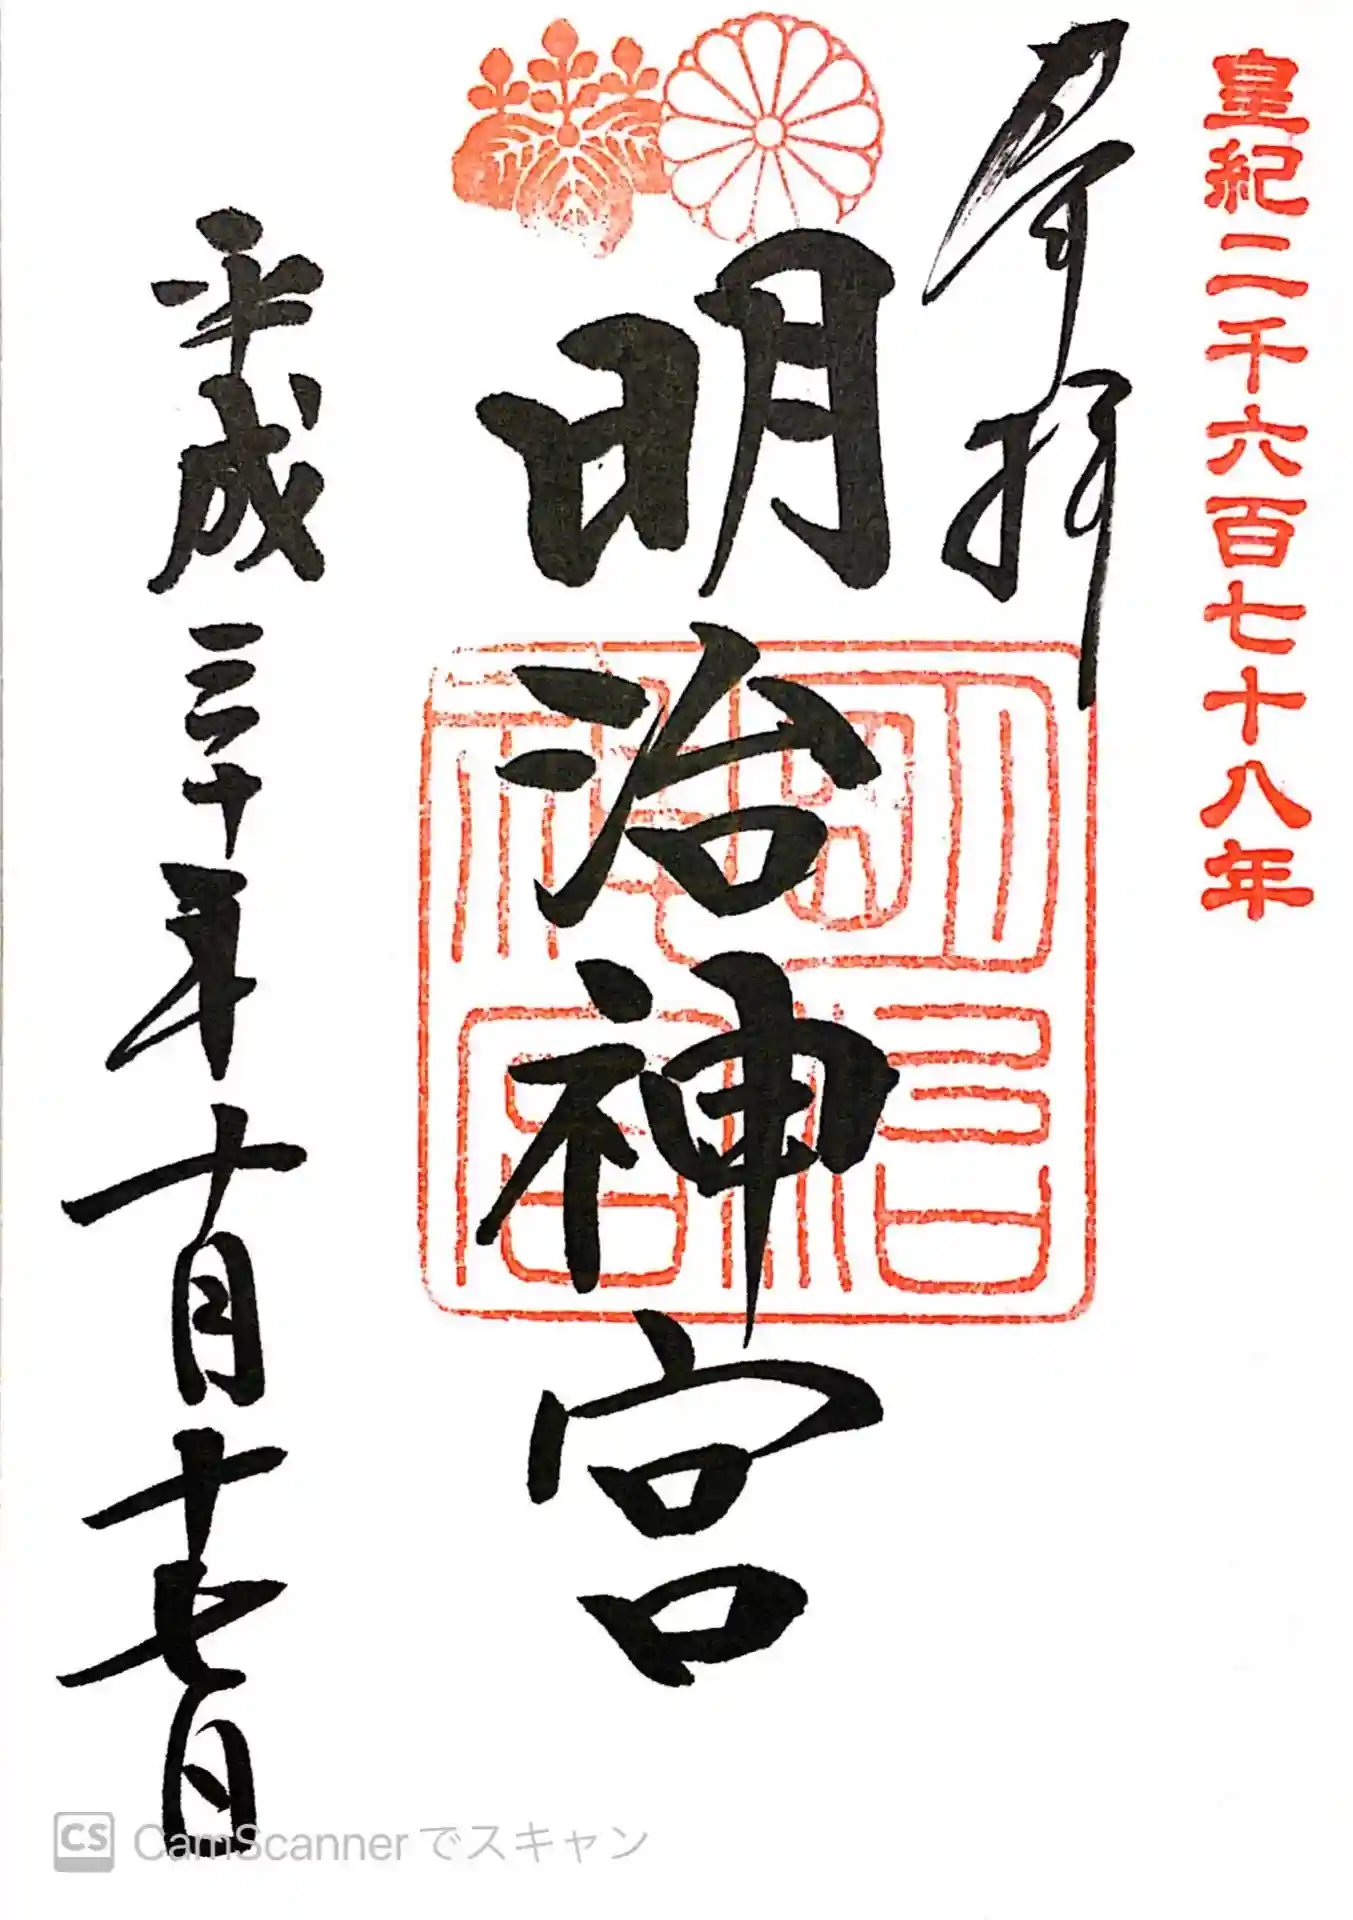 皇紀二千六百七十八年
奉拝
明治神宮
平成三十年十月十七日
CS CamScannerでスキャン